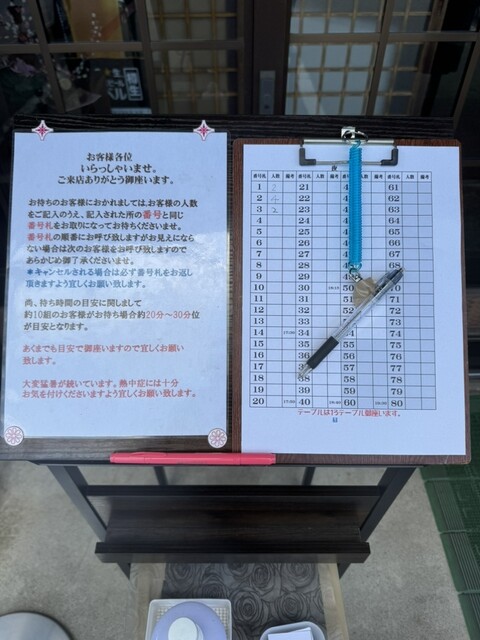 お客様各位
いらっしゃいませ。
ご来店ありがとう御座います。
お待ちのお客様におかれましてはお客様の人数
をご記入のうえ、記入された所の番号と同じ
番号札をお取りになってお待ちくださいませ。
番号札の順番にお呼び致しますがお見えになら
ない場合は次のお客様をお呼び致しますので
あらかじめ御了承くださいませ。
※キャンセルされる場合は必ず番号札をお返し
頂きますよう宜しくお願い致します。
尚、待ち時間の目安に関しまして
約10組のお客様がお待ち場合約20分~30分位
が目安となります。
あくまでも目安で御座いますので宜しくお願い
致します。
大変猛暑が続いています。熱中症には十分
お気を付けくださいますよう宜しくお願い致します。
番号札 人数 備考 番号札 人数 備考 番号札 人数 備考 番号札 人数 備考
1 2 21 61
2 4 22 62
3 2 23 63
4 24 64
5 25 65
6 26 66
7 27 67
8 28 68
9 29
10 30 50 70
11 31 51 71
12 32 52 72
13 33 53 73
14 34 54 74
15 35 55 75
16 56 76
17 57 77
18 38 58 78
19 39 59 79
20 40 60 80
テーブルは15テーブル御座います。